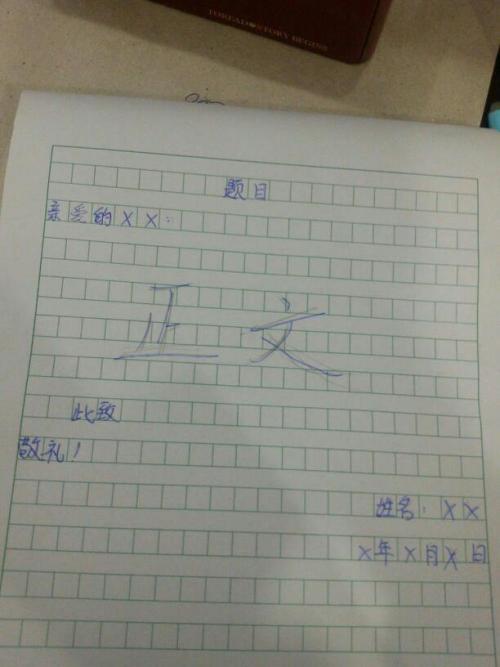 TO READ A STORY BEGINS
题目
亲爱的XX：
正文
此致
敬礼！
姓名：XX
X年X月X日